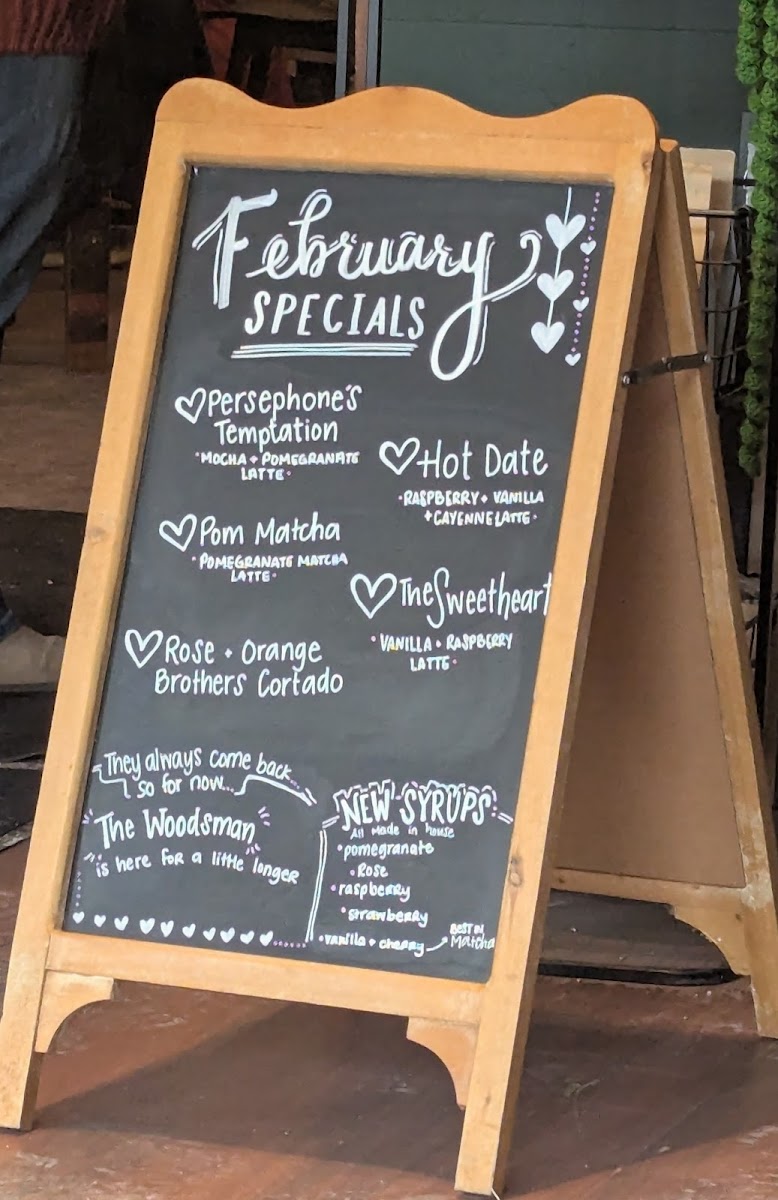 February
SPECIALS
Persephone's
Temptation
•MOCHA + POMEGRANATE
LATTE•
Hot Date
•RASPBERRY + VANILLA
+ CAYENNE LATTE•
Pom Matcha
•POMEGRANATE MATCHA
LATTE•
The Sweetheart
•VANILLA + RASPBERRY
LATTE•
Rose + Orange
Brothers Cortado
They always come back...
so for now...
The Woodsman
is here for a little longer
NEW SYRUPS
All Made in house
•pomegranate
•Rose
•raspberry
•strawberry
•vanilla + cherry → BEST IN
Matcha